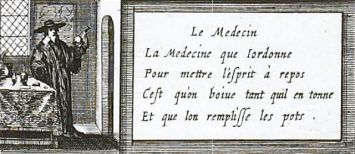 Le Medecin
La Medecine que Iordonne
Pour mettre l'esprit à repos
C'est qu'on boiue tant quil en tonne
Et que lon remplisse les pots .